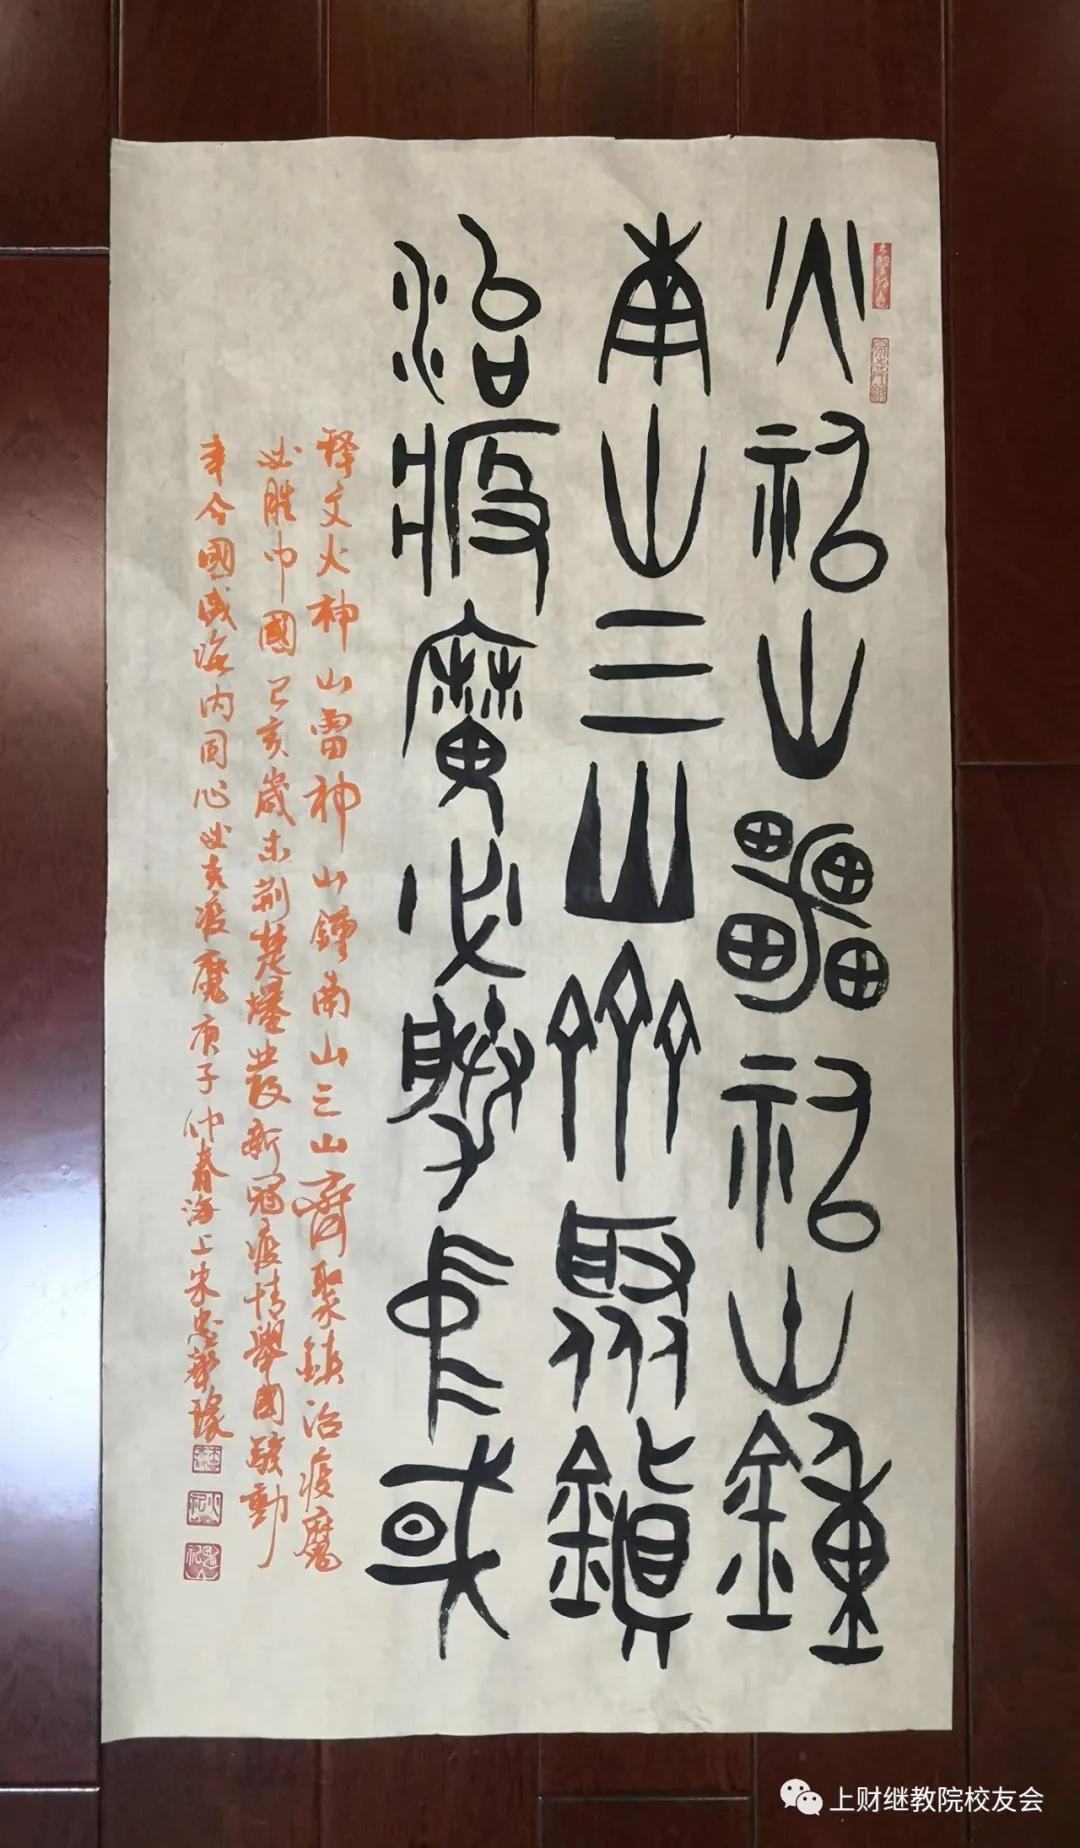 火神山雷神山鍾
南山三山齊聚鎮
治疫魔必勝中或
釋文火神山雷神山鍾南山三山齊聚鎮治疫魔
必勝中國己亥歲末荊楚爆發新冠疫情舉國發動
年今國盛海内同心必克疫魔庚子仲春海上朱忠
上财继教院校友会